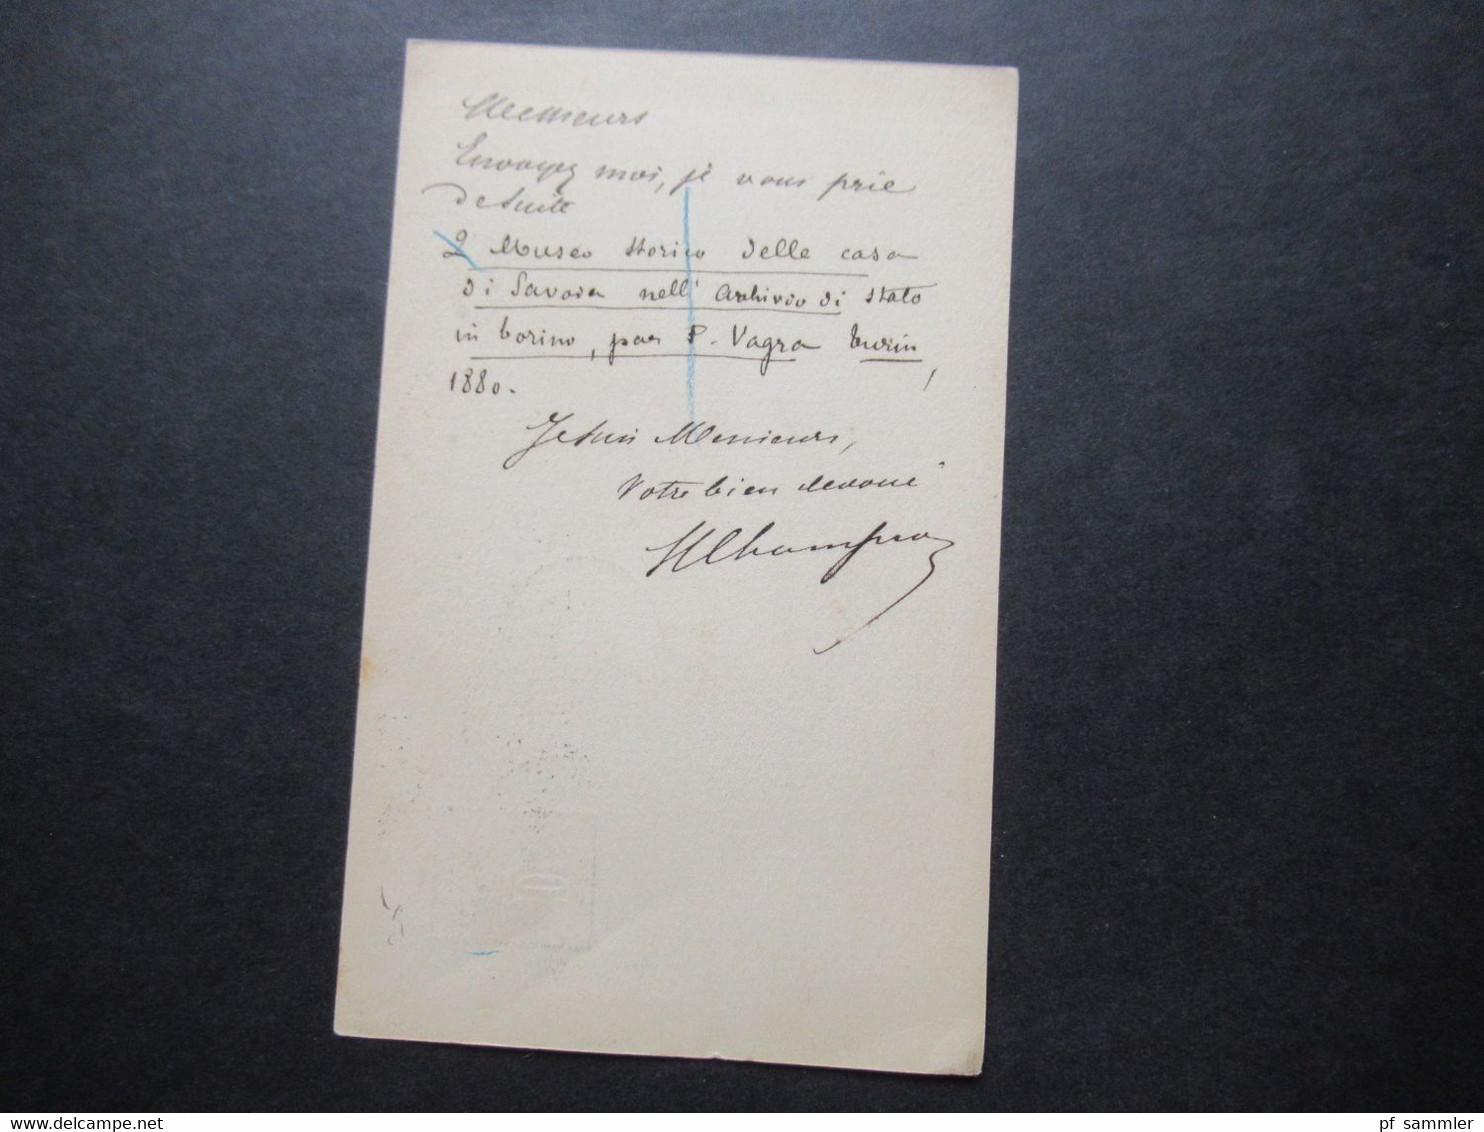 Messieurs
Envoyez moi, je vous prie
de suite
2 Museo storico delle casa
di Savoia nell' Archivio di stato
in torino, par P. Vagra Turin,
1880.
Je suis Messieurs,
Votre bien devoué
HChampion
pf_sammler
www.delcampe.net